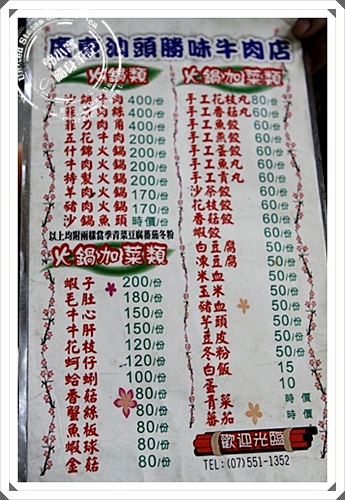 廣東汕頭勝味牛肉店
火鍋類
沙茶牛肉 400/份
400/份
400/份
200/份
200/份
200/份
200/份
羊肉火鍋 170/份
豬肉火鍋 170/份
沙鍋魚頭 時價/份
以上均附兩樣當季青菜豆腐蕃茄冬粉
火鍋加菜類
蝦子 200/份
毛肚 180/份
牛心 150/份
牛肝 150/份
花枝 120/份
蚵仔 120/份
蛤蜊 100/份
香菇 80/份
蟹絲 80/份
魚板 80/份
蝦球 80/份
金菇 80/份
火鍋加菜類
手工花枝丸 80/份
手工香菇丸 60/份
手工魚餃 60/份
手工蛋餃 60/份
手工魚丸 60/份
手工貢丸 60/份
沙茶魚餃 60/份
花枝餃 60/份
香菇餃 60/份
蝦餃 60/份
白豆腐 50/份
凍豆腐 50/份
米血 50/份
玉米 50/份
豬血 50/份
芋頭 50/份
豆皮 50/份
冬粉 50/份
白飯 15
蛋 10
青菜 時價
蕃茄 時價
歡迎光臨
TEL:(07)551-1352